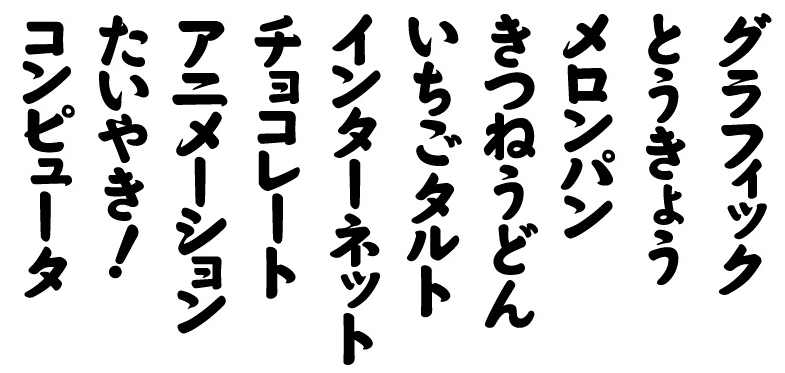 グラフィック
とうきょう
メロンパン
きつねうどん
いちごタルト
インターネット
チョコレート
アニメーション
たいやき！
コンピュータ